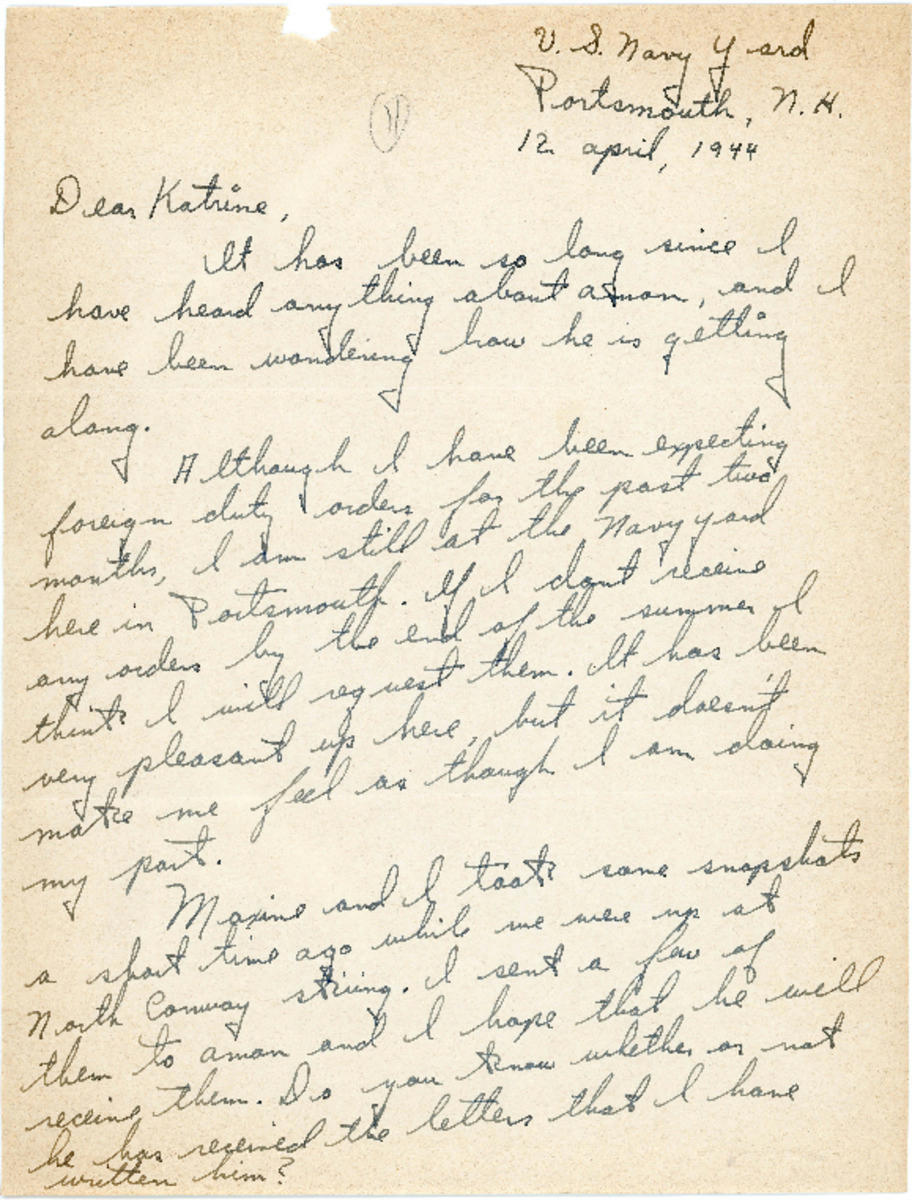 U. S. Navy Yard
Portsmouth, N. H.
12 april, 1944
Dear Katrine,
It has been so long since I
have heard anything about amon, and I
have been wondering how he is getting
along.
Although I have been expecting
foreign duty orders for the past two
months, I am still at the Navy yard
here in Portsmouth. If I dont receive
any orders by the end of the summer I
think I will request them. It has been
very pleasant up here, but it doesn't
make me feel as though I am doing
my part.
Maxine and I took some snapshots
a short time ago while we were up at
North Conway skiing. I sent a few of
them to amon and I hope that he will
receive them. Do you know whether or not
he has received the letters that I have
written him?